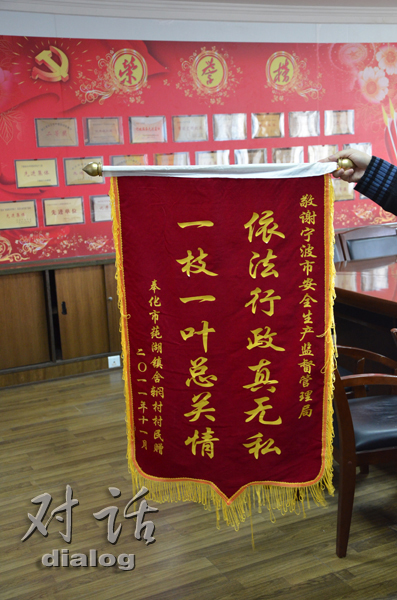 荣誉榜
敬谢宁波市安全生产监督管理局
依法行政真无私
一枝一叶总关情
奉化市莼湖镇舍辋村村民赠
二〇一一年十一月
对话
dialog